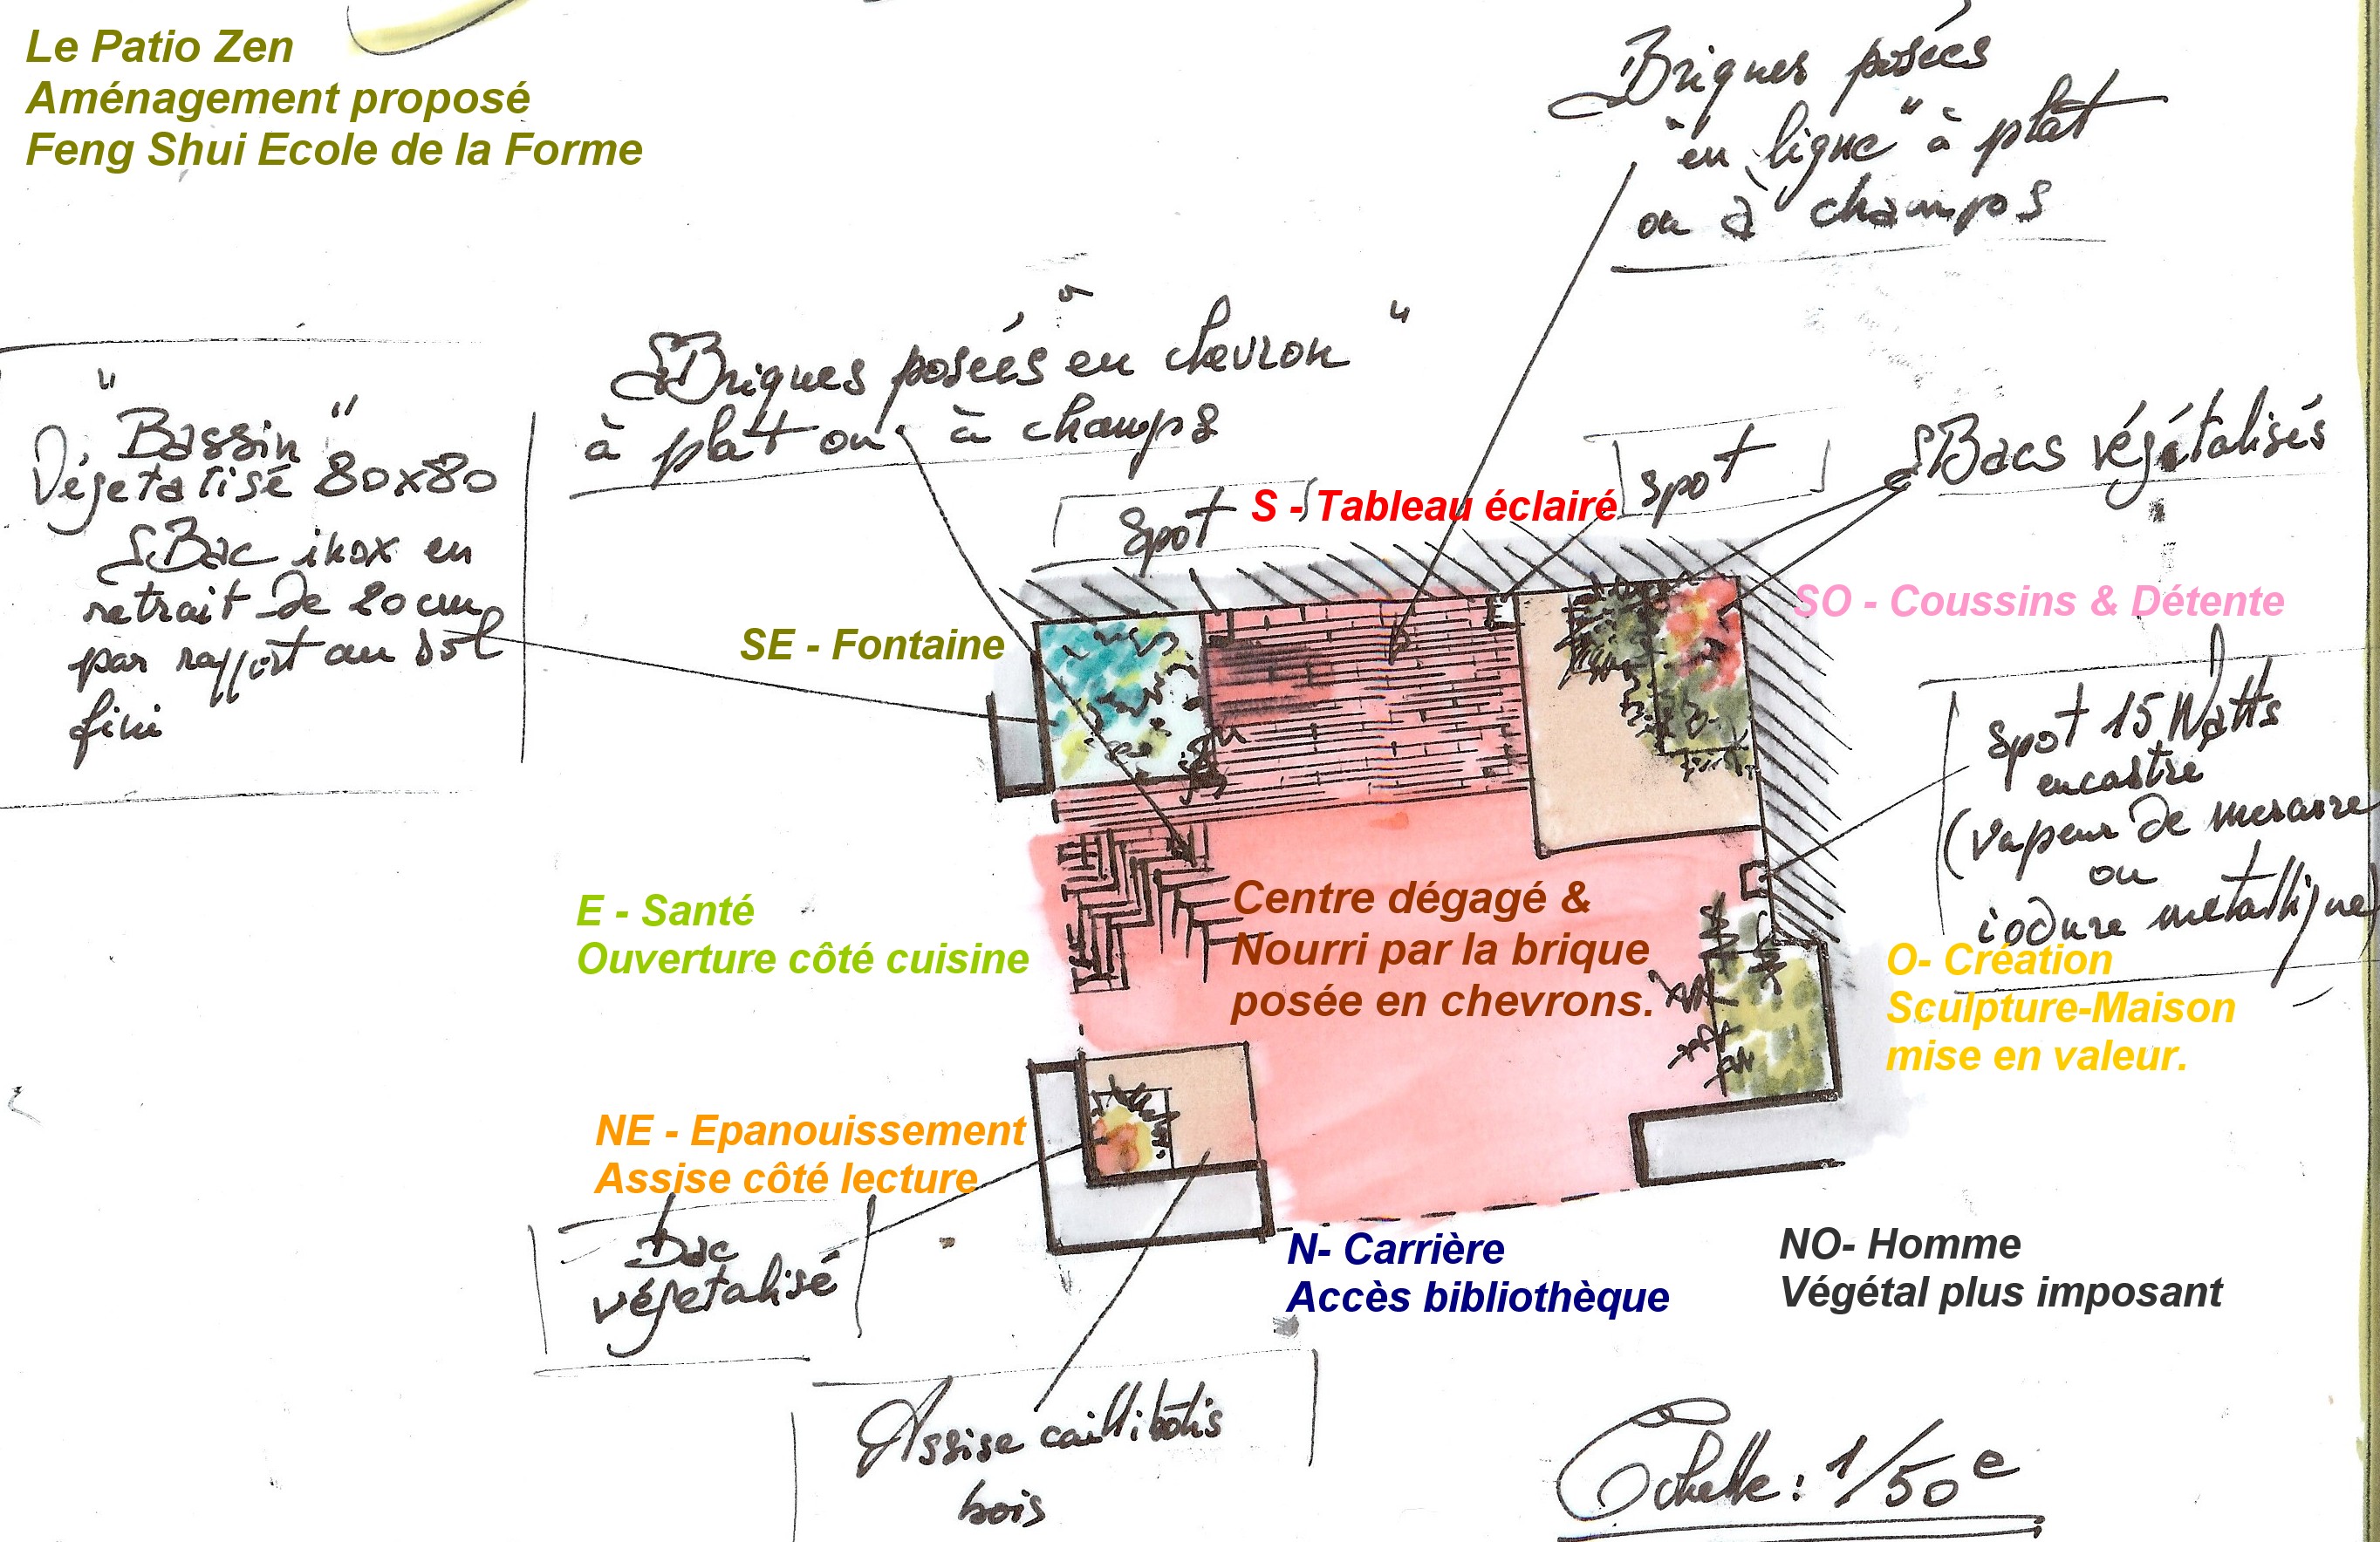 Le Patio Zen
Aménagement proposé
Feng Shui Ecole de la Forme
Briques posées
"en ligne" à plat
ou à champs
Briques posées "en chevron"
à plat ou à champs
"Bassin"
Végetalisé 80x80
Bac inox en
retrait de 20cm
par rapport au sol
fini
spot
Bacs végétalisés
S - Tableau éclairé
spot
SO - Coussins & Détente
SE - Fontaine
spot 15 Watts
encastré
(vapeur de mercure
ou
iodure metallique)
E - Santé
Ouverture côté cuisine
Centre dégagé &
Nourri par la brique
posée en chevrons.
O- Création
Sculpture-Maison
mise en valeur.
NE - Epanouissement
Assise côté lecture
Bac
végetalisé
N- Carrière
Accès bibliothèque
NO- Homme
Végétal plus imposant
Assise caillibotis
bois
Echelle : 1/50e